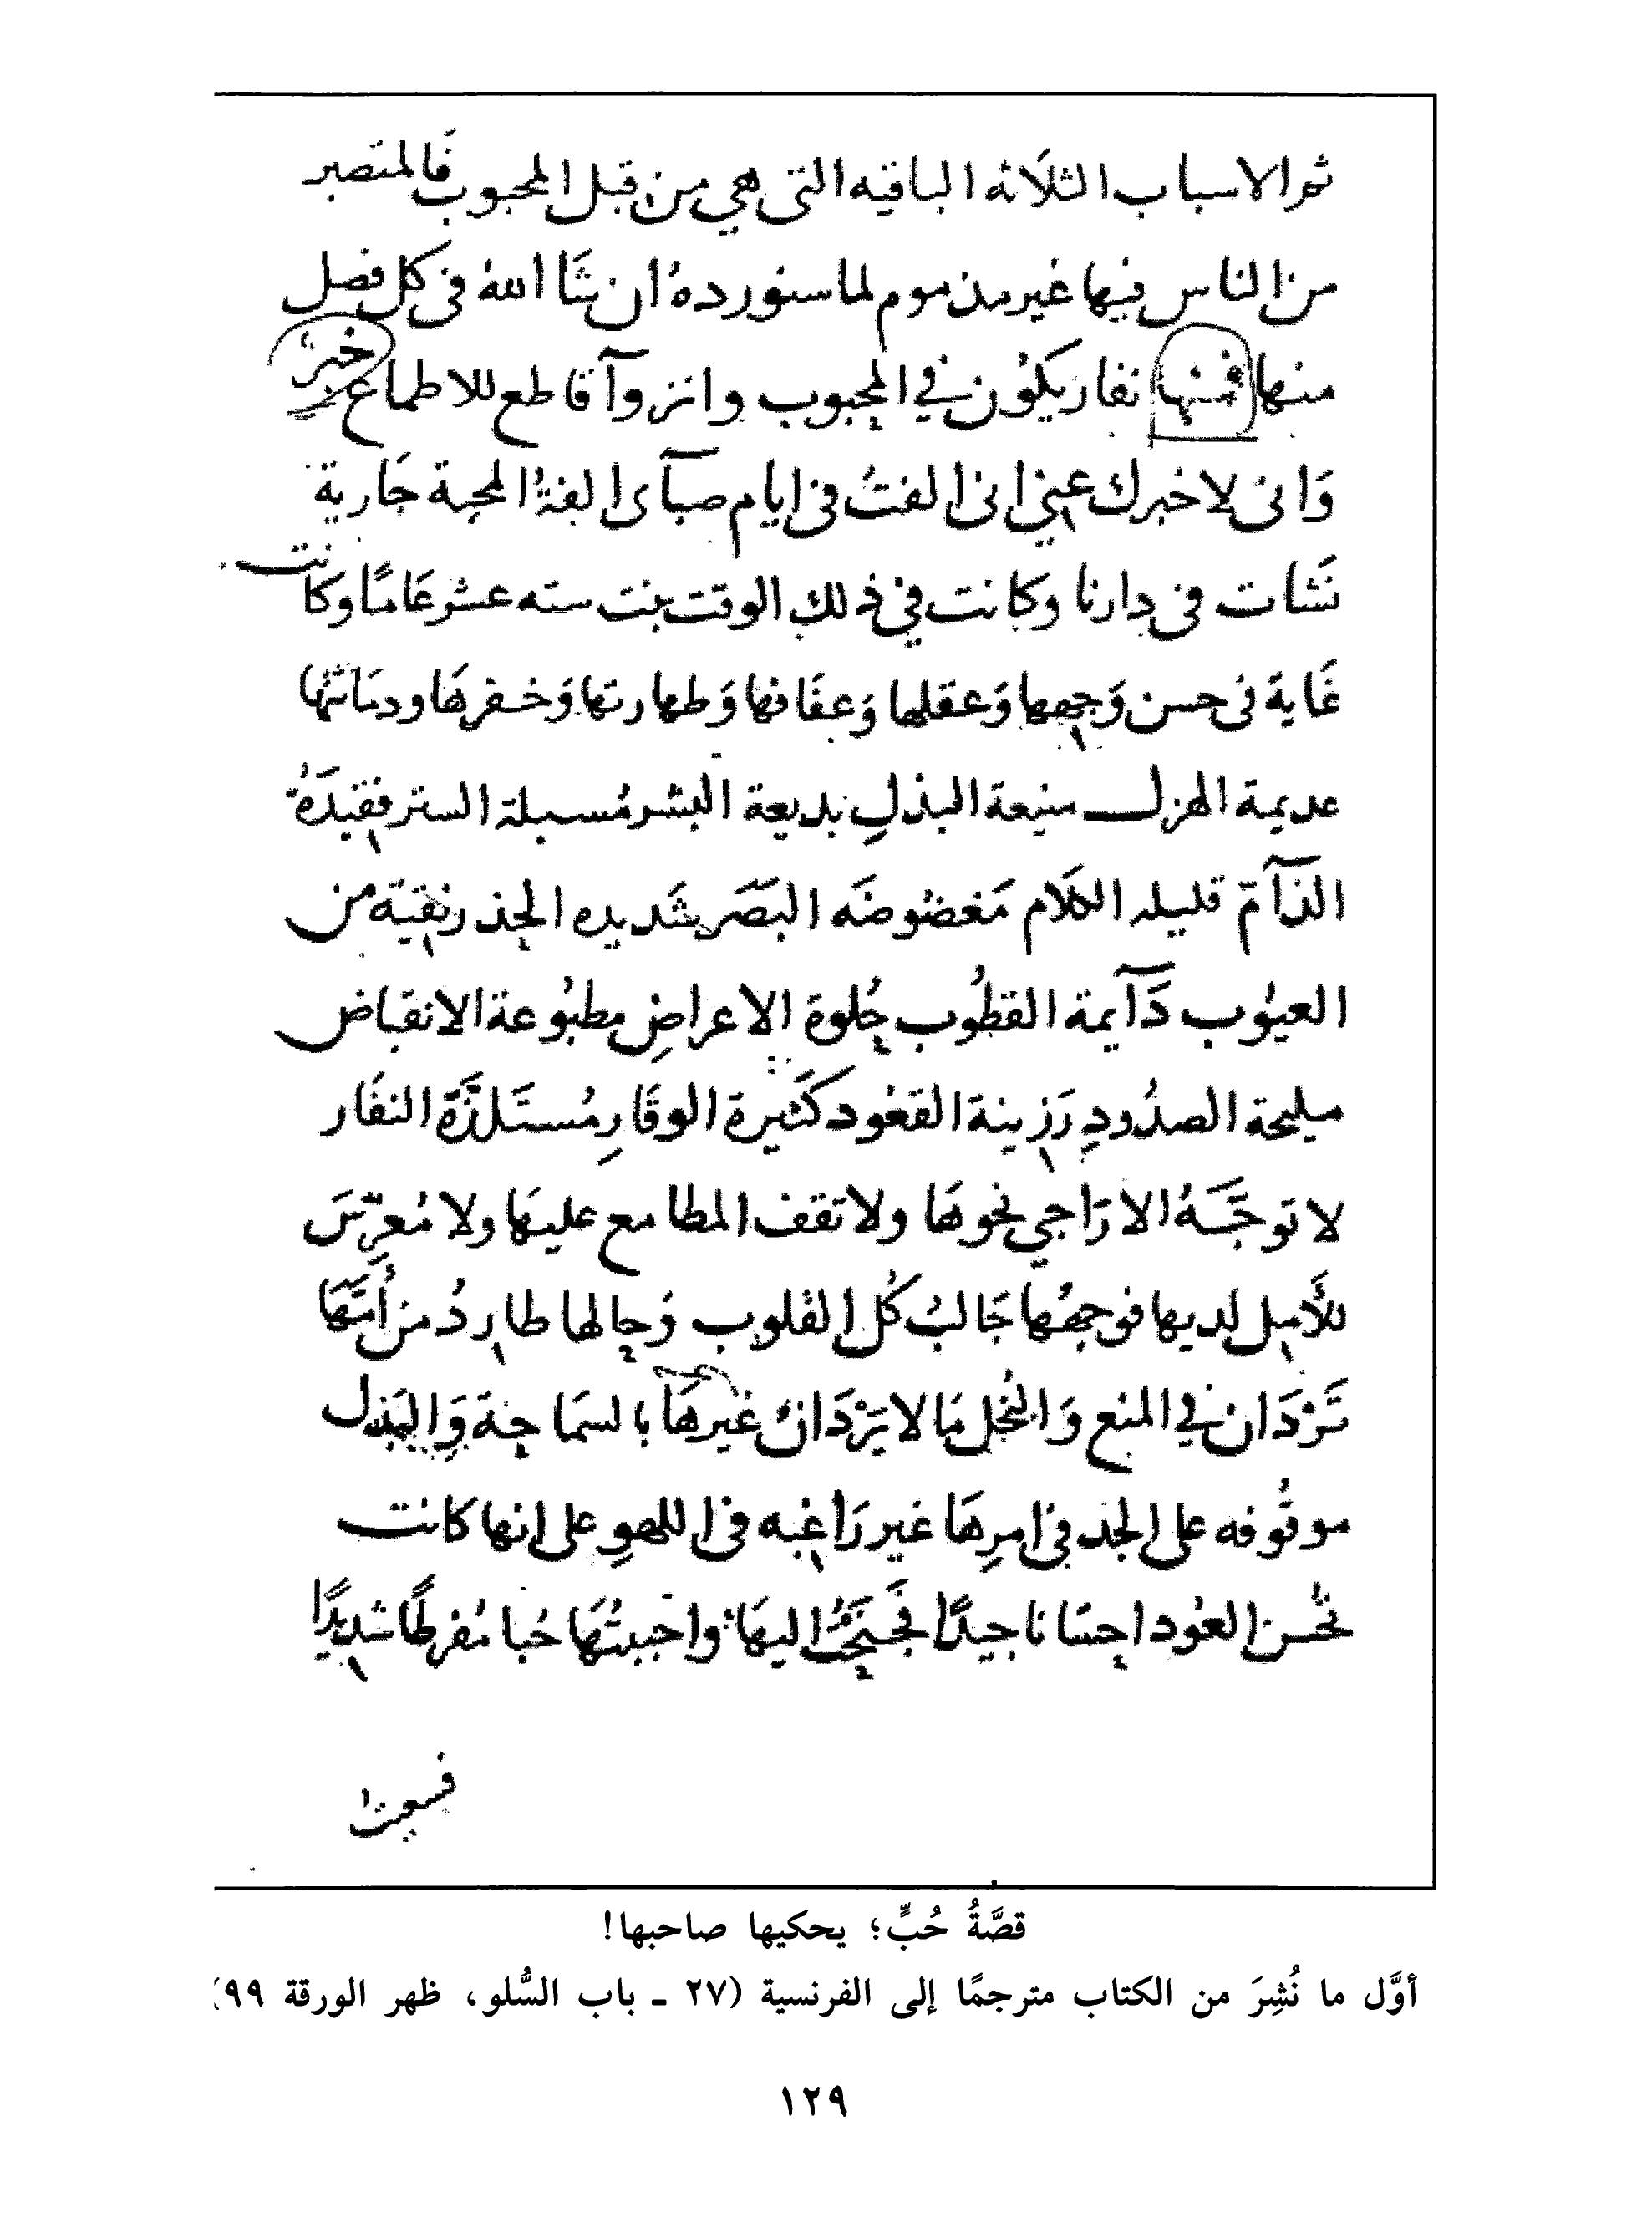 ثم الاسباب الثلاثه الباقيه التى هي من قبل المحبوب فالمتصبر
من الناس فيها غير مذموم لما سنورده ان شا الله فى كل فصل
منها فمنها نفار يكون في المحبوب وانزوآ قاطع للاطماع خبر
وَانى لاخبرك عني انى الفتُ فى ايام صبآى الفةُ المحبة جَارية
نَشات فى دارنا وكانت في ذلك الوقت بنت سته عشر عَامًا وكانت
غَاية فى حسن وَجهها وَعقلها وَعفَافها وَطهارتها وَخفرهَا ودمَاثتها
عديمة الهزل منيعة البذلِ بديعة البشر مُسبلة الستر فقيدَةُ
الذآمّ قليله الكلَام مَغضُوضَه البَصَر شَديده الحذر نقية من
العيُوب دَآيمة القطُوب حُلوة الاعراضِ مطبُوعة الانقباض
مليحة الصدُودِ رَزينة القعُود كَثيرة الوقَارِ مُستَلذَّة النفَار
لا توجَّهُ الارَاجي نحوهَا ولا تقف المطامع عليهَا ولا مُعرَّسَ
للأمل لديها فوجهُها جَالبُ كُل القلوب وَحالها طاردُ من أمَّهَا
تَزدَان في المنع وَالبُخل مَا لا يَزدَانُ غيرهَا بالسمَاحة وَالبَذل
موقُوفه على الجد فى امرِهَا غير رَاغبه فى اللهوِ على انها كانت
تُحسن العُود احسَانا جيدًا فجَنَحْتُ اليهَا واحببتُهَا حُبا مُفرطًا شديدًا
فسعيت
قصَّةُ حُبٍّ؛ يحكيها صاحبها!
أوَّل ما نُشِرَ من الكتاب مترجمًا إلى الفرنسية (٢٧ ـ باب السُّلو، ظهر الورقة ٩٩)
١٢٩